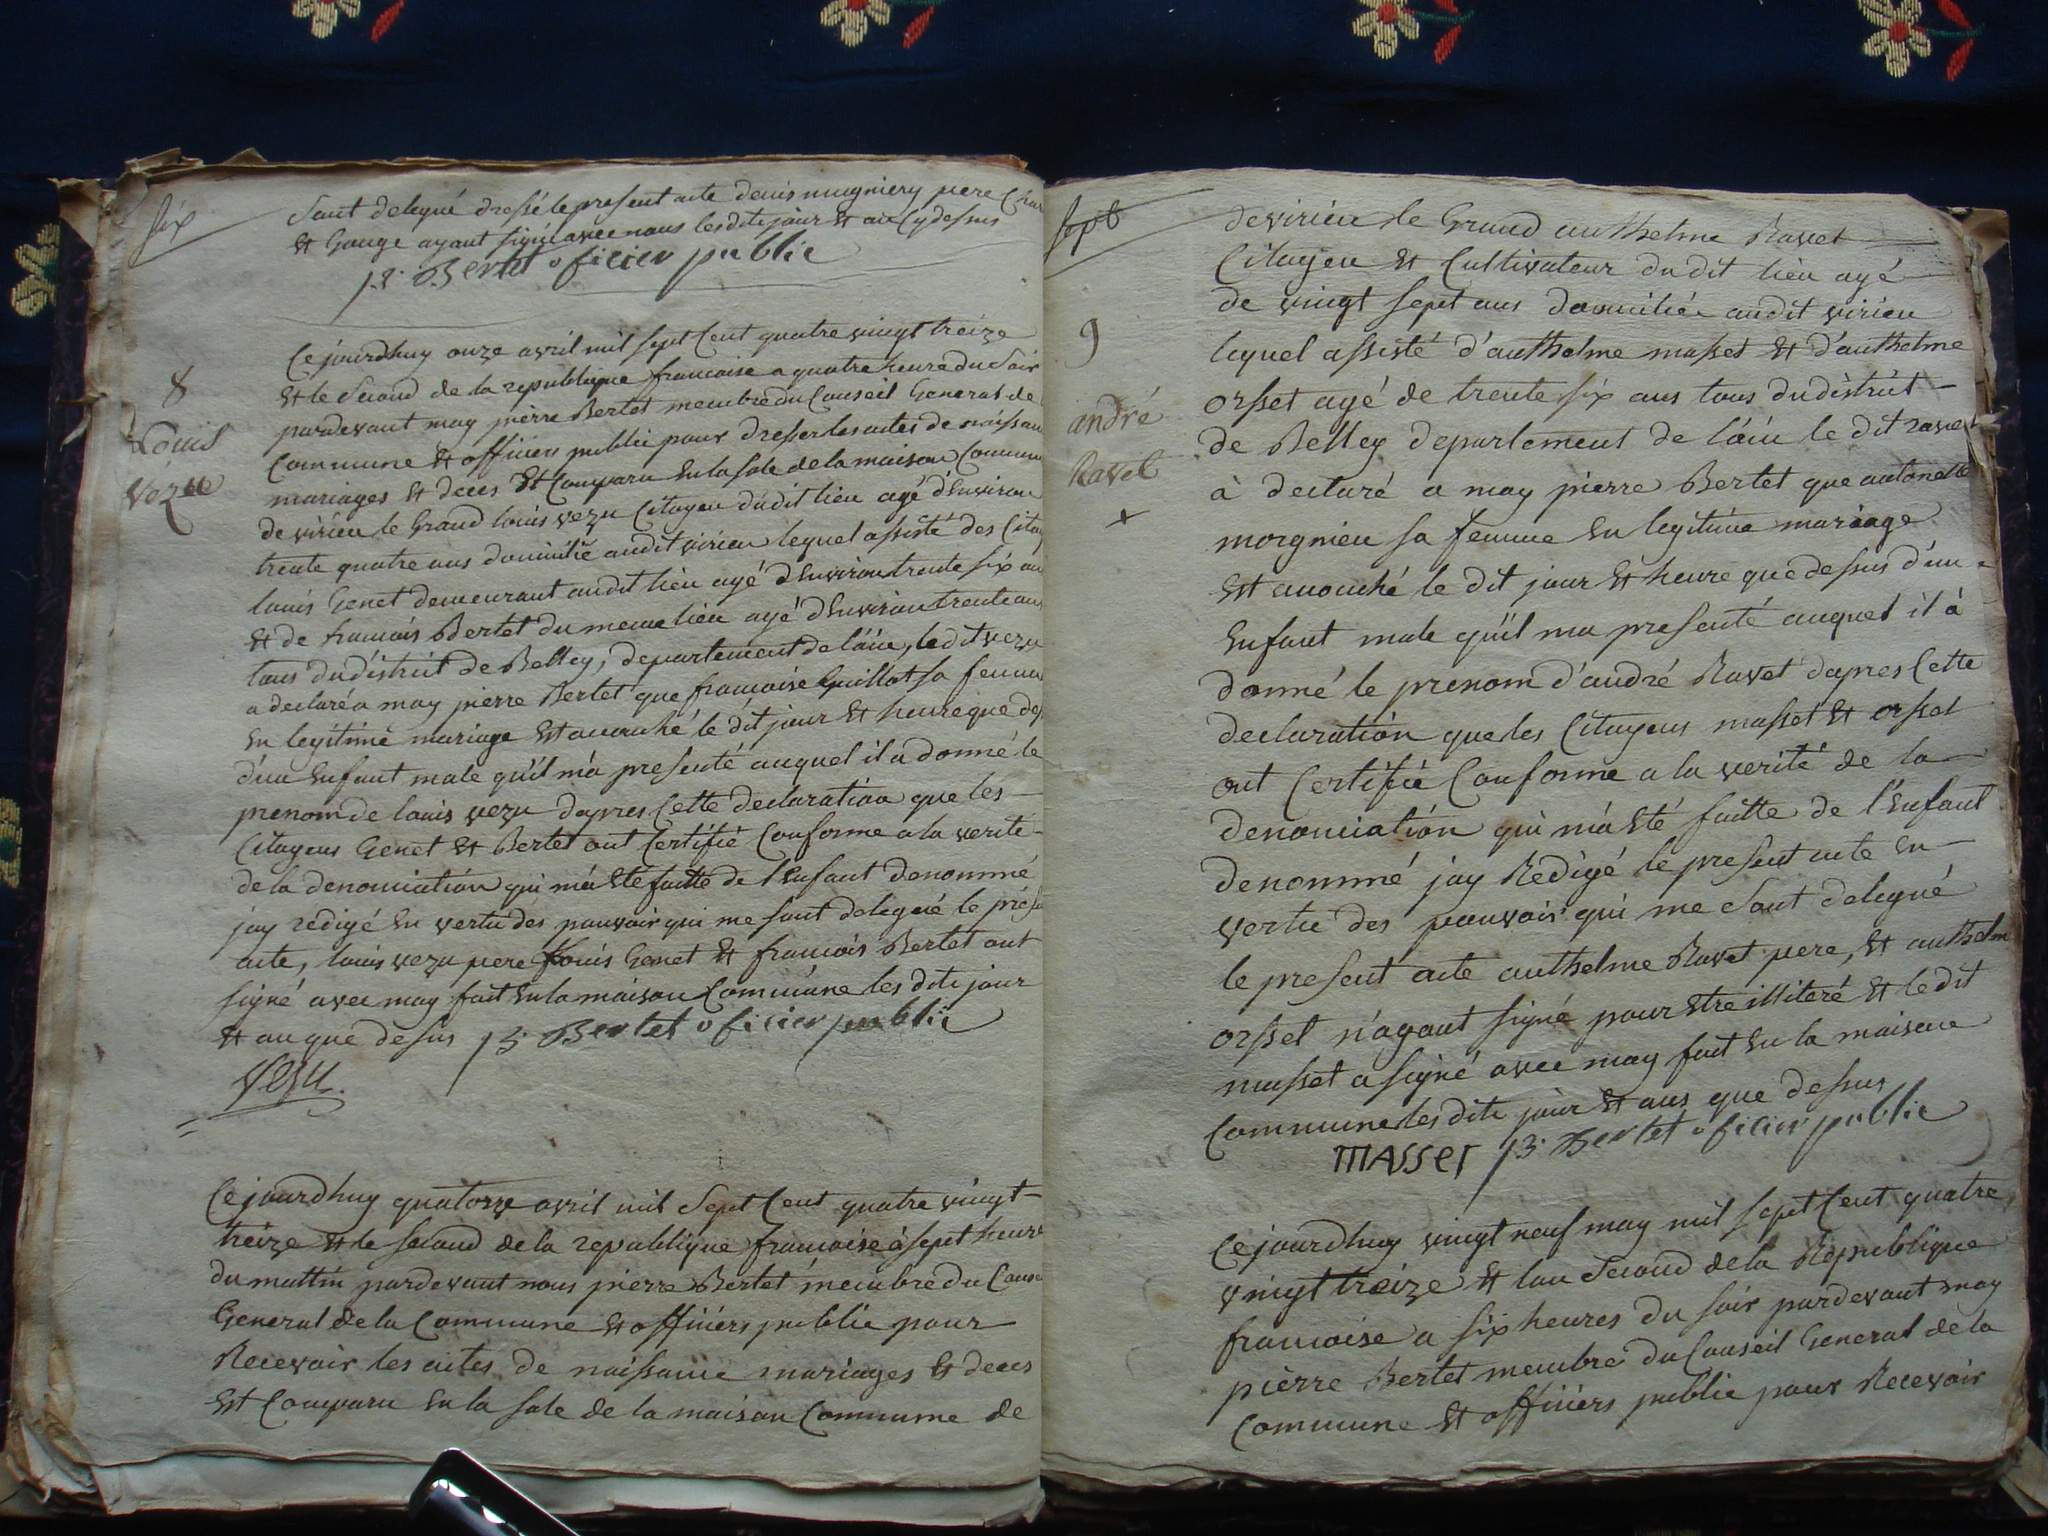 six
sont delegué dressé le present acte denis mugniery pere
Et Gouge ayant signé avec nous les dits jour Et an Cy dessus
p. Bertet oficier public
8
Louis
Vezu
Ce jourdhuy onze avril mil sept Cent quatre vingt treize
Et le second de la republique francaise a quatre heure du Soir
pardevant moy pierre Bertet membre du Conseil General de
Commune Et officiers public pour dresser les actes de naissan
mariages Et deces Est Comparu En la sale de la maison Commune
de virieu le Grand louis vezu Citoyen dudit lieu agé d'Environ
trente quatre ans domicilié audit virieu lequel assisté des Citoy
louis Genet demeurant audit lieu agé d'Environ trente six an
Et de francois Bertet du meme lieu agé d'Environ trente ans
tous du district de Belley, departement de l'ain, le dit vezu
a declaré a moy pierre Bertet que francoise Guillot sa femme
En legitime mariage Est acouché le dit jour Et heure que des
d'un Enfant male qu'il m'a presenté auquel il a donné le
prenom de louis vezu dapres Cette declaration que les
Citoyens Genet Et Bertet ont Certifié Conforme a la verité
de la denonciation qui m'a Eté faitte de l'Enfant denommé
jay redigé En vertu des pouvoir qui me sont delegué le prese
acte, louis vezu pere Louis Genet Et francois Bertet ont
signé avec moy fait En la maison Commune les dits jour
Et an que desus p. Bertet oficier public
Vesu
Ce jourdhuy quatorze avril mil Sept Cent quatre vingt
treize Et le second de la republique francaise à sept heure
du mattin pardevant nous pierre Bertet membre du Conse
General de la Commune Et officiers public pour
Recevoir les actes de naissance mariages Et deces
Est Comparu En la sale de la maison Commune de
sept
de virieu le Grand anthelme Ravet
Citoyen Et Cultivateur du dit lieu agé
de vingt sept ans domicilié audit virieu
9
lequel assisté d'anthelme masset Et d'anthelme
orsset agé de trente six ans tous du district
andré
de Belley departement de l'ain le dit ravet
Ravet
à declaré a moy pierre Bertet que antonette
morgnieu sa femme En legitime mariage
Est acouché le dit jour Et heure que dessus d'un
Enfant male qu'il ma presenté auquel il à
donné le prenom d'andré Ravet dapres Cette
declaration que les Citoyens masset Et orsset
ont Certifié Conforme a la verité de la
denonciation qui m'a Eté faitte de l'Enfant
denommé jay Redigé le present acte En
vertu des pouvoir qui me sont delegué
le present acte anthelme Ravet pere, Et anthelm
orsset n'ayant signé pour Etre illiteré Et le dit
masset a signé avec moy fait En la maison
Commune les dits jour Et ans que dessus
MASSET p. Bertet oficier public
Ce jourdhuy vingt neuf may mil sept Cent quatre
vingt treize Et lan Second de la Republique
francoise a six heures du soir pardevant moy
pierre Bertet membre du Conseil General de la
Commune Et officiers public pour Recevoir